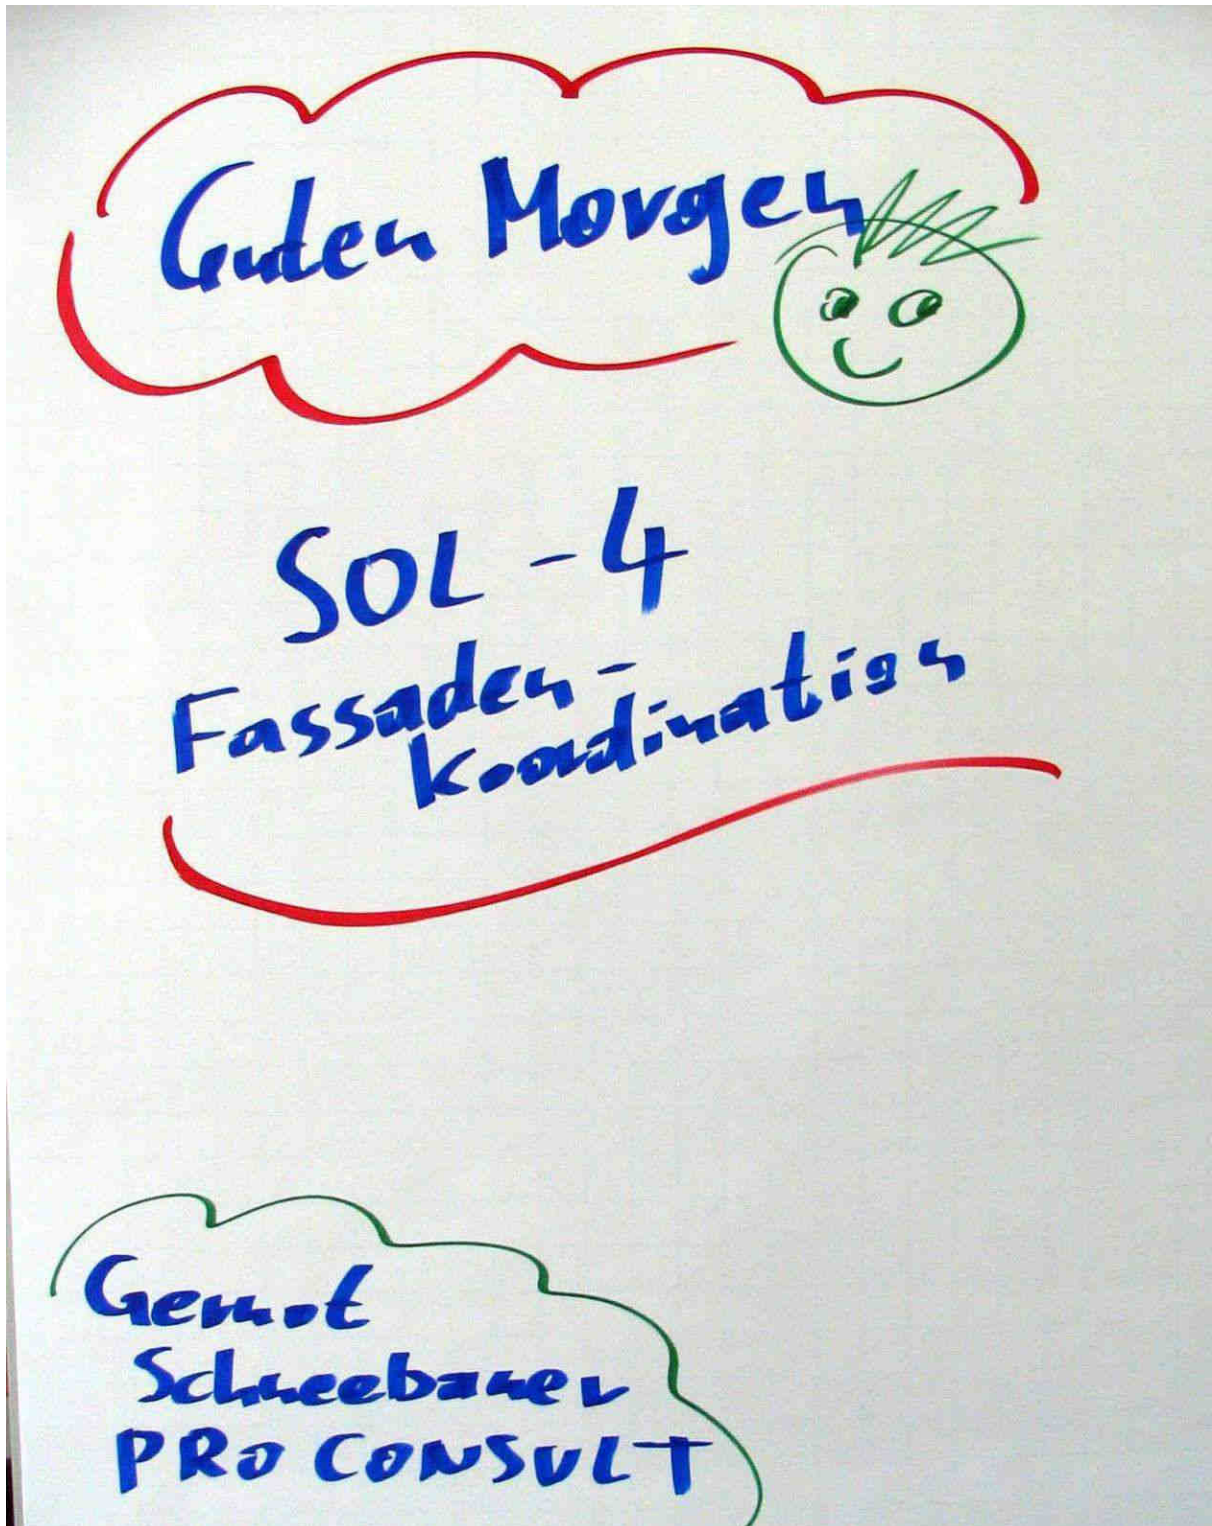 Guten Morgen
SOL-4
Fassaden-
koordination
Gernot
Schneebauer
PRO CONSULT